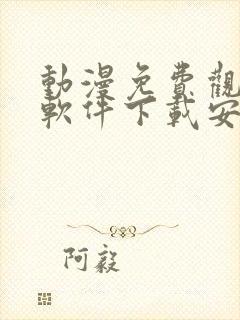 動漫免費觀
軟件下載安
阿毅